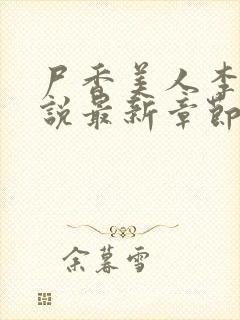 尸香美人李
說最新章節
余暮雪